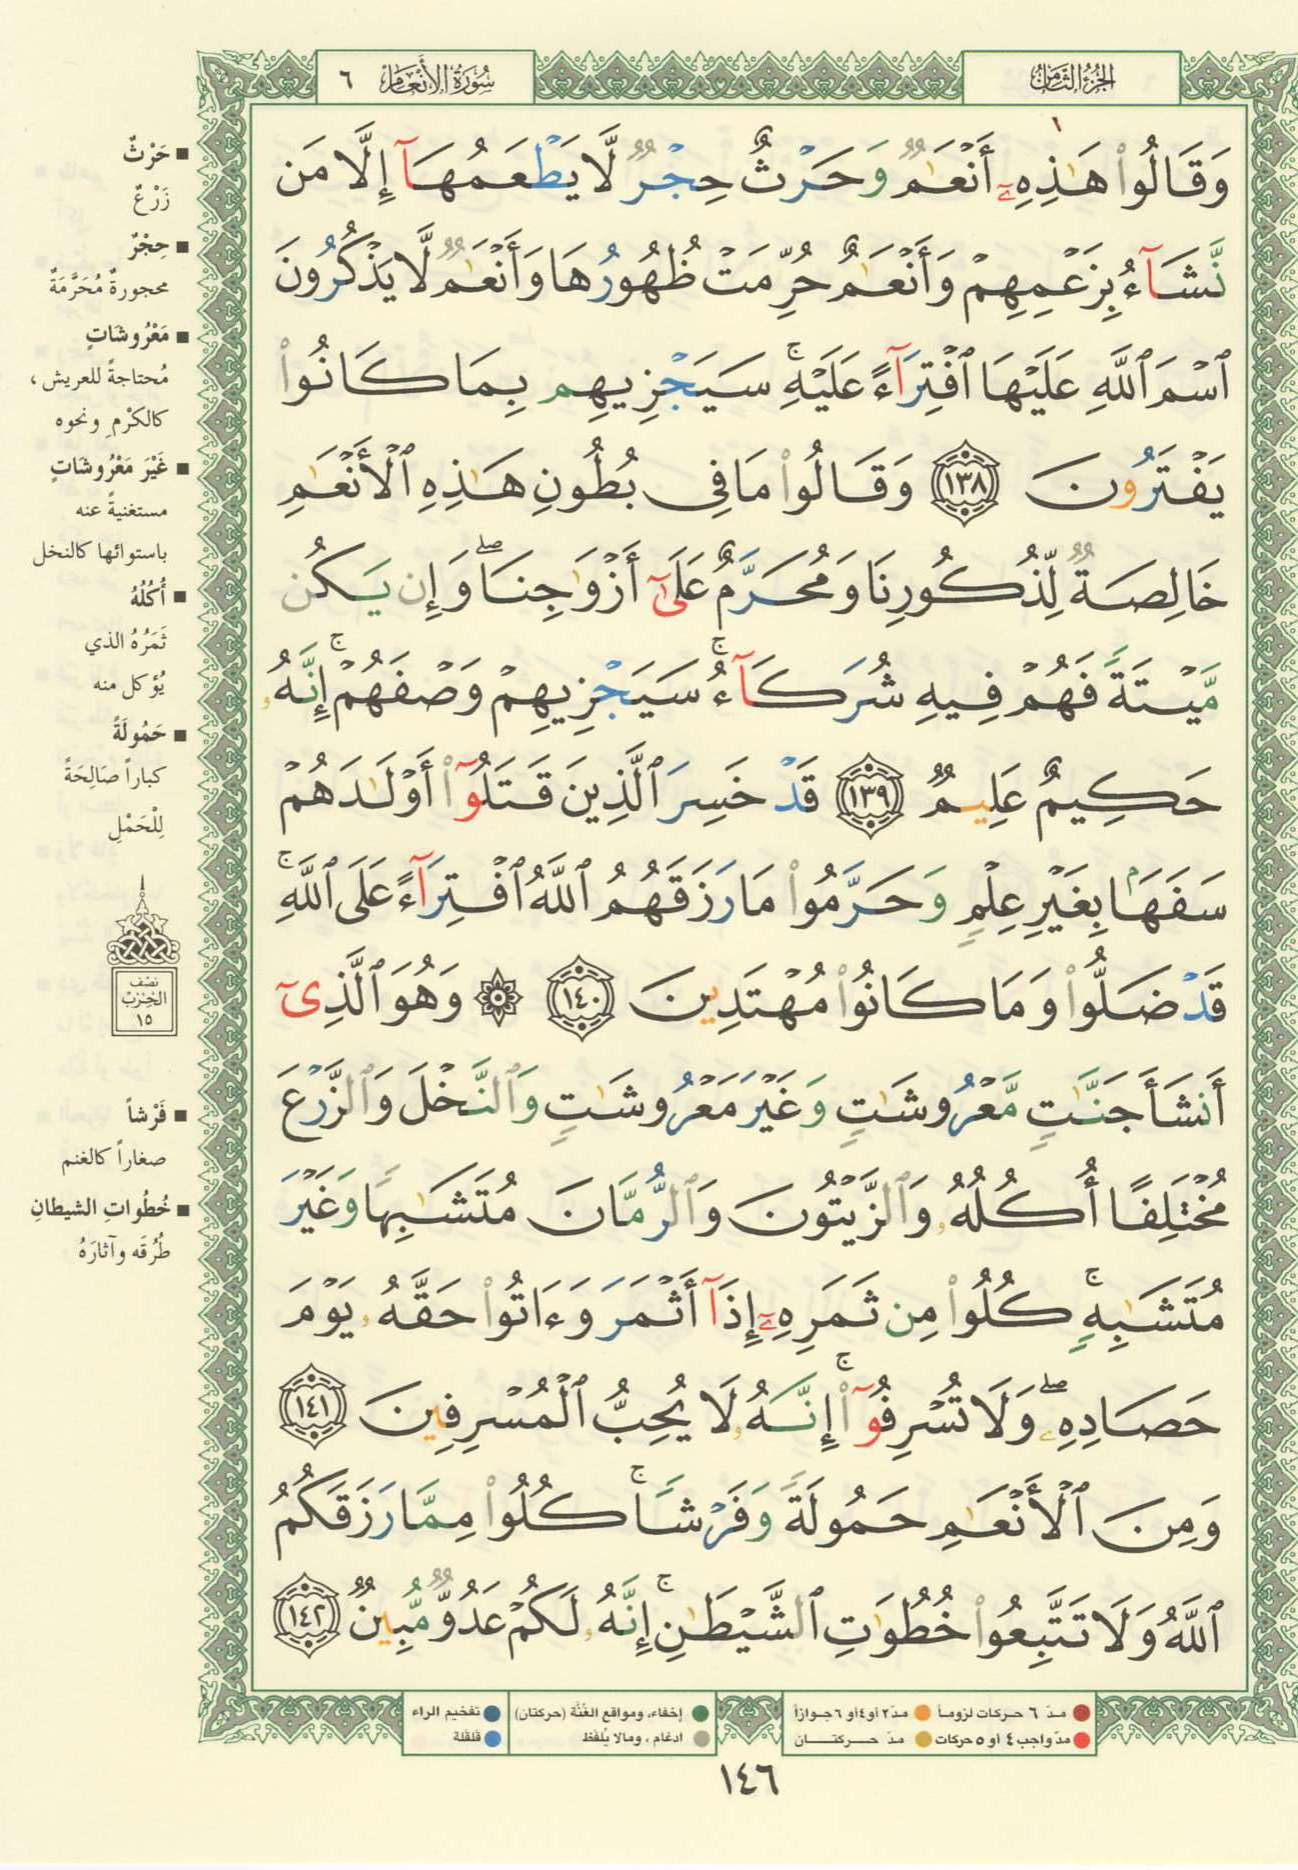 الجزء الثامن
سورة الأنعام ٦
وَقَالُوا۟ هَـٰذِهِۦٓ أَنْعَـٰمٌ وَحَرْثٌ حِجْرٌ لَّا يَطْعَمُهَآ إِلَّا مَن
نَّشَآءُ بِزَعْمِهِمْ وَأَنْعَـٰمٌ حُرِّمَتْ ظُهُورُهَا وَأَنْعَـٰمٌ لَّا يَذْكُرُونَ
ٱسْمَ ٱللَّهِ عَلَيْهَا ٱفْتِرَآءً عَلَيْهِ ۚ سَيَجْزِيهِم بِمَا كَانُوا۟
يَفْتَرُونَ ١٣٨ وَقَالُوا۟ مَا فِى بُطُونِ هَـٰذِهِ ٱلْأَنْعَـٰمِ
خَالِصَةٌ لِّذُكُورِنَا وَمُحَرَّمٌ عَلَىٰٓ أَزْوَٰجِنَا ۖ وَإِن يَكُن
مَّيْتَةً فَهُمْ فِيهِ شُرَكَآءُ ۚ سَيَجْزِيهِمْ وَصْفَهُمْ ۚ إِنَّهُۥ
حَكِيمٌ عَلِيمٌ ١٣٩ قَدْ خَسِرَ ٱلَّذِينَ قَتَلُوٓا۟ أَوْلَـٰدَهُمْ
سَفَهًۢا بِغَيْرِ عِلْمٍ وَحَرَّمُوا۟ مَا رَزَقَهُمُ ٱللَّهُ ٱفْتِرَآءً عَلَى ٱللَّهِ ۚ
قَدْ ضَلُّوا۟ وَمَا كَانُوا۟ مُهْتَدِينَ ١٤٠ ۞ وَهُوَ ٱلَّذِىٓ
أَنشَأَ جَنَّـٰتٍ مَّعْرُوشَـٰتٍ وَغَيْرَ مَعْرُوشَـٰتٍ وَٱلنَّخْلَ وَٱلزَّرْعَ
مُخْتَلِفًا أُكُلُهُۥ وَٱلزَّيْتُونَ وَٱلرُّمَّانَ مُتَشَـٰبِهًا وَغَيْرَ
مُتَشَـٰبِهٍ ۚ كُلُوا۟ مِن ثَمَرِهِۦٓ إِذَآ أَثْمَرَ وَءَاتُوا۟ حَقَّهُۥ يَوْمَ
حَصَادِهِۦ ۖ وَلَا تُسْرِفُوٓا۟ ۚ إِنَّهُۥ لَا يُحِبُّ ٱلْمُسْرِفِينَ ١٤١
وَمِنَ ٱلْأَنْعَـٰمِ حَمُولَةً وَفَرْشًا ۚ كُلُوا۟ مِمَّا رَزَقَكُمُ
ٱللَّهُ وَلَا تَتَّبِعُوا۟ خُطُوَٰتِ ٱلشَّيْطَـٰنِ ۚ إِنَّهُۥ لَكُمْ عَدُوٌّ مُّبِينٌ ١٤٢
■ حَرْثٌ
زَرْعٌ
■ حِجْرٌ
محجورةٌ مُحَرَّمَةٌ
■ مَعْرُوشَاتٍ
مُحتاجةً للعريش،
كالكرْمِ ونحوه
■ غَيْرَ مَعْرُوشَاتٍ
مستغنيةً عنه
باستوائها كالنخل
■ أُكُلُهُ
ثَمَرُهُ الذي
يُؤكل منه
■ حَمُولَةً
كباراً صَالِحَةً
لِلْحَمْلِ
نصف
الحزب
١٥
■ فَرْشاً
صغاراً كالغنم
■ خُطُواتِ الشيطانِ
طُرُقَه وآثارَهُ
مدّ ٦ حركات لزوماً مدّ ٢ أو ٤ أو ٦ جوازاً
مدّ واجب ٤ أو ٥ حركات مدّ حركتان
إخفاء، ومواقع الغُنَّة (حركتان)
ادغام، ومالا يُلفظ
تفخيم الراء
قلقلة
١٤٦